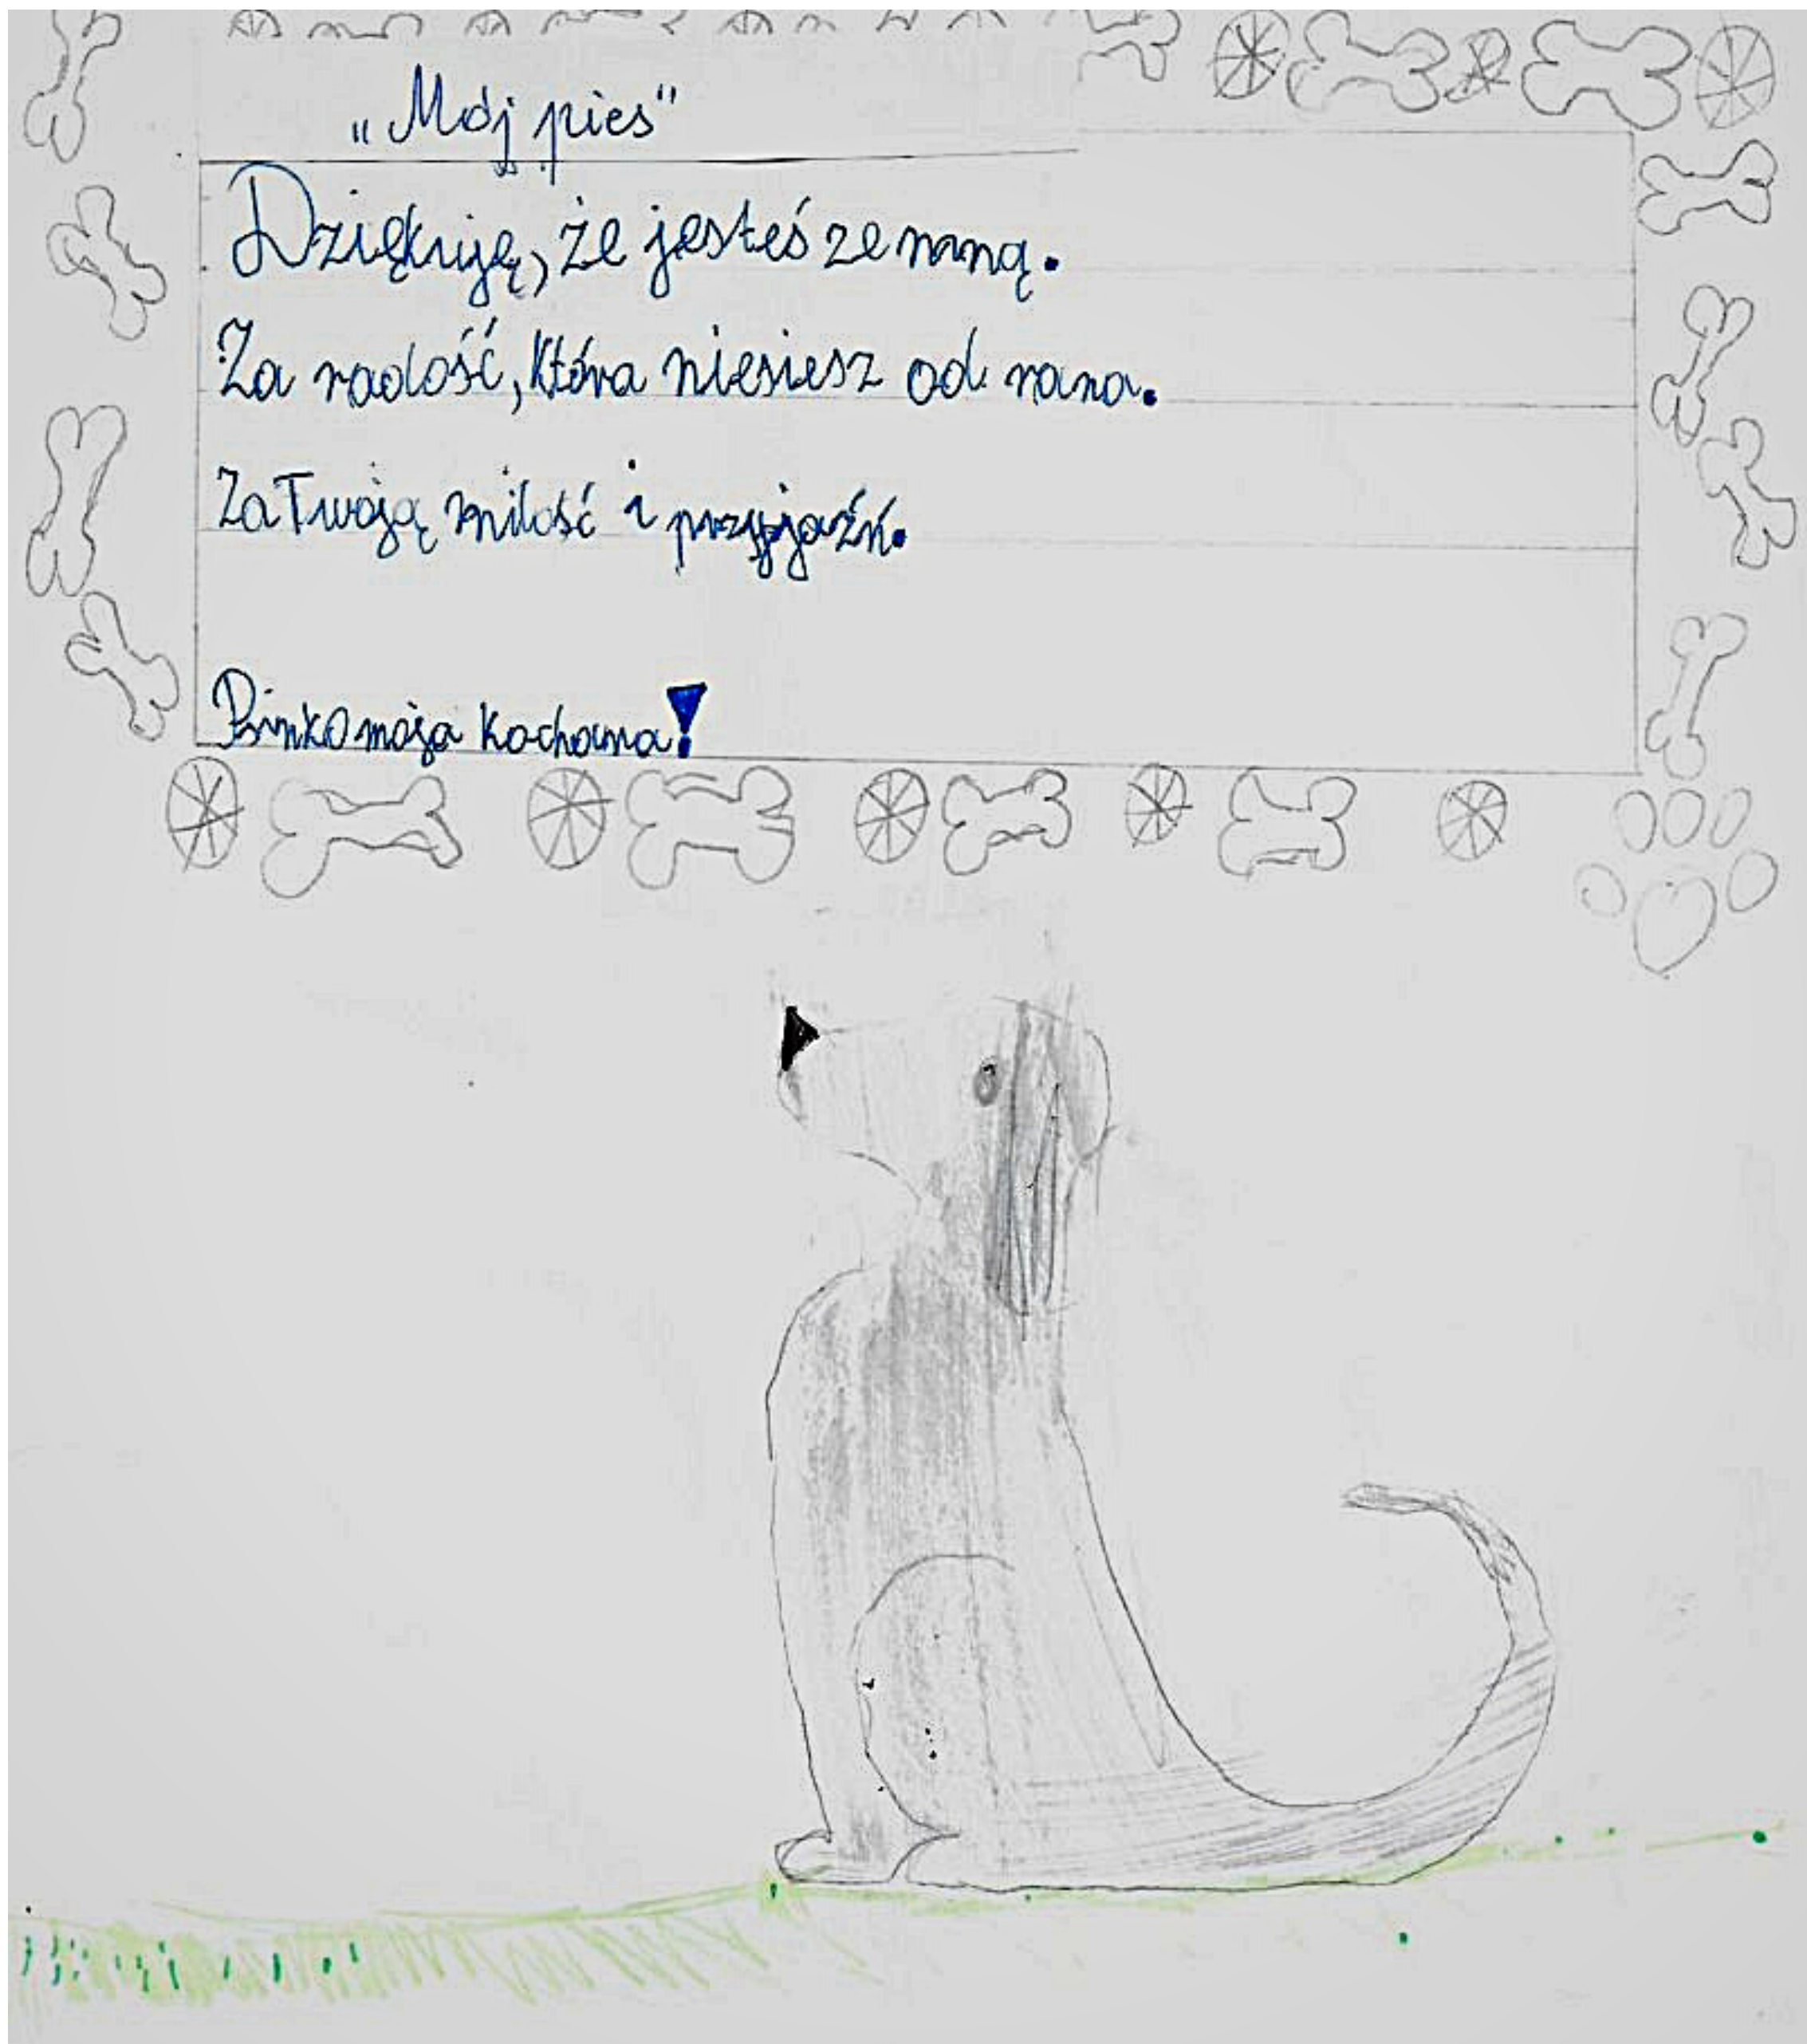 „Mój pies"
Dziękuję, że jesteś ze mną.
Za radość, która niesiesz od rana.
Za Twoją miłość i przyjaźń.
Pinko moja kochana!